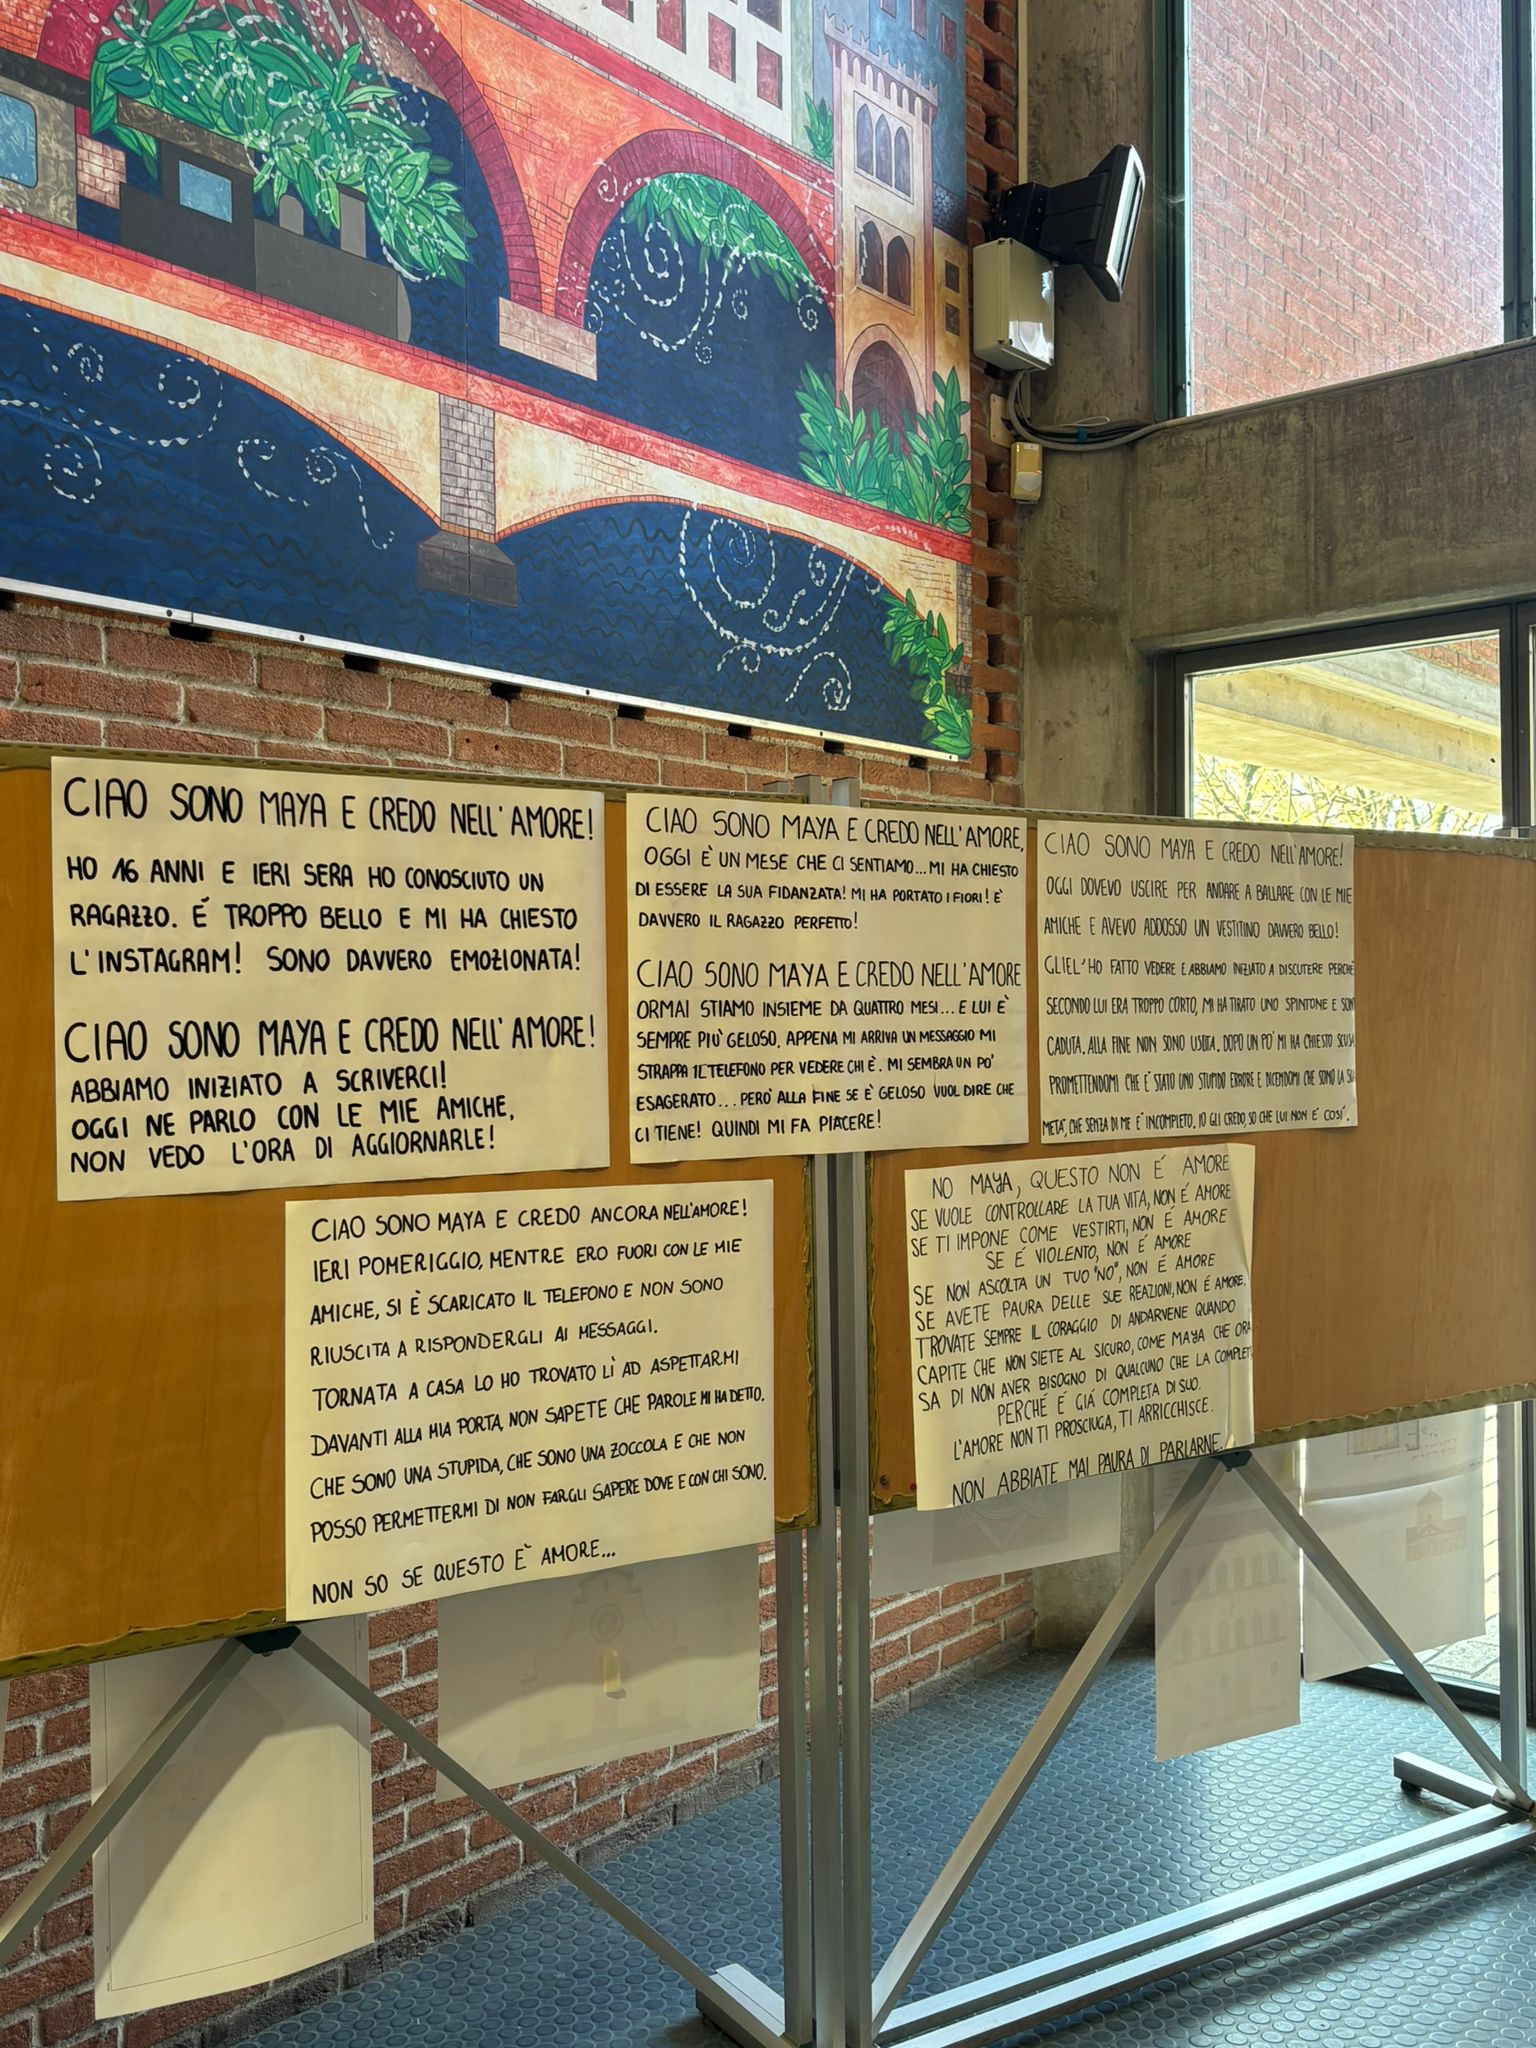 CIAO SONO MAYA E CREDO NELL'AMORE!
HO 16 ANNI E IERI SERA HO CONOSCIUTO UN
RAGAZZO. É TROPPO BELLO E MI HA CHIESTO
L'INSTAGRAM! SONO DAVVERO EMOZIONATA!
CIAO SONO MAYA E CREDO NELL'AMORE!
ABBIAMO INIZIATO A SCRIVERCI!
OGGI NE PARLO CON LE MIE AMICHE,
NON VEDO L'ORA DI AGGIORNARLE!
CIAO SONO MAYA E CREDO NELL'AMORE,
OGGI È UN MESE CHE CI SENTIAMO... MI HA CHIESTO
DI ESSERE LA SUA FIDANZATA! MI HA PORTATO I FIORI! È
DAVVERO IL RAGAZZO PERFETTO!
CIAO SONO MAYA E CREDO NELL'AMORE
ORMAI STIAMO INSIEME DA QUATTRO MESI... E LUI È
SEMPRE PIÙ GELOSO, APPENA MI ARRIVA UN MESSAGGIO MI
STRAPPA IL TELEFONO PER VEDERE CHI È. MI SEMBRA UN PO'
ESAGERATO... PERÒ ALLA FINE SE È GELOSO VUOL DIRE CHE
CI TIENE! QUINDI MI FA PIACERE!
CIAO SONO MAYA E CREDO NELL'AMORE!
OGGI DOVEVO USCIRE PER ANDARE A BALLARE CON LE MIE
AMICHE E AVEVO ADDOSSO UN VESTITINO DAVVERO BELLO!
GLIEL'HO FATTO VEDERE E ABBIAMO INIZIATO A DISCUTERE PERCHÈ
SECONDO LUI ERA TROPPO CORTO, MI HA TIRATO UNO SPINTONE E SON
CADUTA. ALLA FINE NON SONO USCITA. DOPO UN PO' MI HA CHIESTO SCUSA
PROMETTENDOMI CHE E' STATO UNO STUPIDO ERRORE E DICENDOMI CHE SONO LA SUA
METÀ, CHE SENZA DI ME E' INCOMPLETO. IO GLI CREDO, SO CHE LUI NON E' COSÌ.
CIAO SONO MAYA E CREDO ANCORA NELL'AMORE!
IERI POMERIGGIO, MENTRE ERO FUORI CON LE MIE
AMICHE, SI È SCARICATO IL TELEFONO E NON SONO
RIUSCITA A RISPONDERGLI AI MESSAGGI.
TORNATA A CASA LO HO TROVATO LÌ AD ASPETTARMI
DAVANTI ALLA MIA PORTA, NON SAPETE CHE PAROLE MI HA DETTO.
CHE SONO UNA STUPIDA, CHE SONO UNA ZOCCOLA E CHE NON
POSSO PERMETTERMI DI NON FARGLI SAPERE DOVE E CON CHI SONO.
NON SO SE QUESTO È AMORE...
NO MAYA, QUESTO NON É AMORE
SE VUOLE CONTROLLARE LA TUA VITA, NON É AMORE
SE TI IMPONE COME VESTIRTI, NON É AMORE
SE É VIOLENTO, NON É AMORE
SE NON ASCOLTA UN TUO "NO", NON É AMORE
SE AVETE PAURA DELLE SUE REAZIONI, NON É AMORE.
TROVATE SEMPRE IL CORAGGIO DI ANDARVENE QUANDO
CAPITE CHE NON SIETE AL SICURO, COME MAYA CHE ORA
SA DI NON AVER BISOGNO DI QUALCUNO CHE LA COMPLET
PERCHÉ É GIÁ COMPLETA DI SUO.
L'AMORE NON TI PROSCIUGA, TI ARRICCHISCE.
NON ABBIATE MAI PAURA DI PARLARNE.